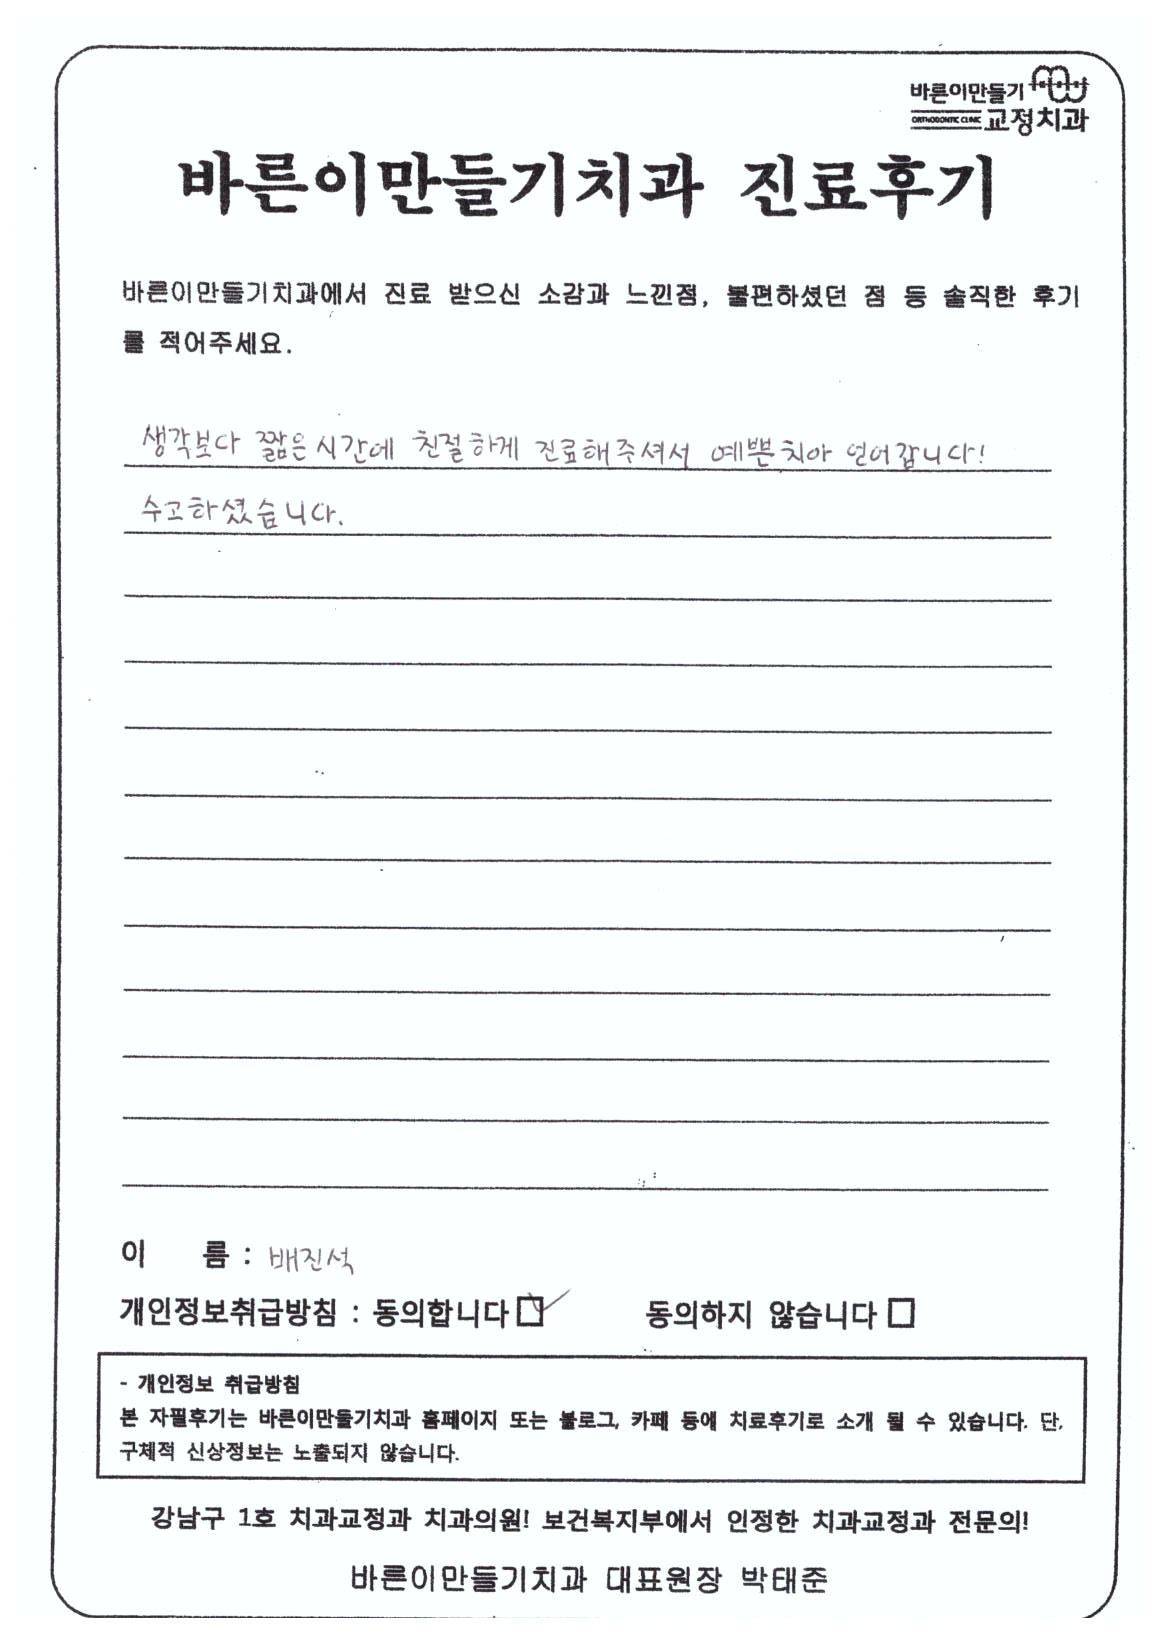 바른이만들기
ORTHODONTIC CLINIC 교정치과
바른이만들기치과 진료후기
바른이만들기치과에서 진료 받으신 소감과 느낀점, 불편하셨던 점 등 솔직한 후기
를 적어주세요.
생각보다 짧은 시간에 친절하게 진료해주셔서 예쁜 치아 얻어갑니다!
수고하셨습니다.
이 름 : 배진석
개인정보취급방침 : 동의합니다 동의하지 않습니다
- 개인정보 취급방침
본 자필후기는 바른이만들기치과 홈페이지 또는 블로그, 카페 등에 치료후기로 소개 될 수 있습니다. 단,
구체적 신상정보는 노출되지 않습니다.
강남구 1호 치과교정과 치과의원! 보건복지부에서 인정한 치과교정과 전문의!
바른이만들기치과 대표원장 박태준